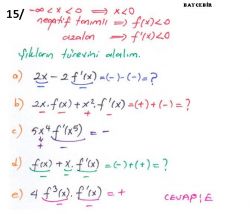 BAYCEBİR
15/ -∞ < x < 0 ⟹ x < 0
negatif tanımlı ⟹ f(x) < 0
azalan ⟹ f'(x) < 0
şıkların türevini alalım.
a) 2x - 2 f'(x) = (-) - (-) = ?
b) 2x. f(x) + x². f'(x) = (+) + (-) = ?
c) 5x⁴ f'(x⁵) = -
+ -
d) f(x) + x. f'(x) = (-) + (+) = ?
e) 4 f³(x). f'(x) = +
CEVAP: E